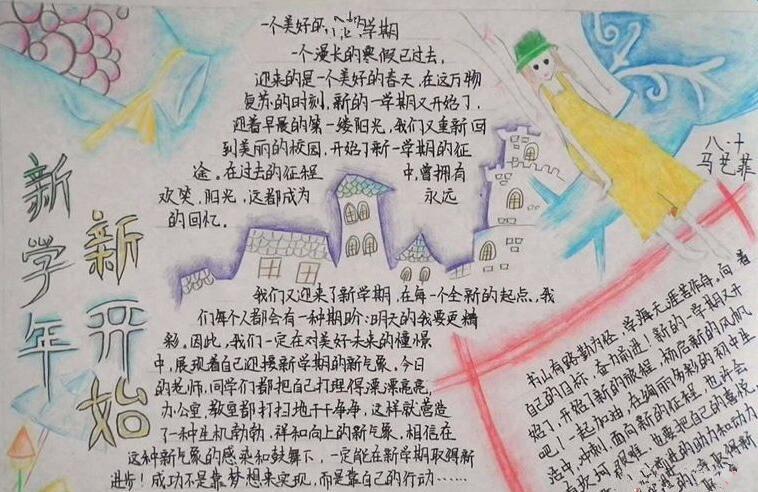 新学年
新开始
一个美好的新学期
一个漫长的寒假已过去,
迎来的是一个美好的春天,在这万物
复苏的时刻,新的一学期又开始了,
迎着早晨的第一缕阳光,我们又重新回
到美丽的校园,开始了新一学期的征
途。在过去的征程中,曾拥有
欢笑,阳光,这都成为永远
的回忆。
八.十
马艺菲
我们又迎来了新学期,在每一个全新的起点,我
们每个人都会有一种期盼:明天的我要更精
彩,因此,我们一定在对美好未来的憧憬
中,展现着自己迎接新学期的新气象,今日
的老师,同学们都把自己打理得漂漂亮亮,
办公室,教室都打扫地干干净净,这样就营造
了一种生机勃勃,祥和向上的新气象,相信在
这种新气象的感染和鼓舞下,一定能在新学期取得新
进步!成功不是靠梦想来实现,而是靠自己的行动……
书山有路勤为径,学海无涯苦作舟。向着
自己的目标,奋力前进!新的一学期又开
始了,开始了新的旅程,扬启新的风帆
吧!一起加油,在绚丽多彩的初中生
活中,冲刺,面向新的征程,也许会
有坎坷艰难,也要把自己的喜悦,
的助力和动力
取得新